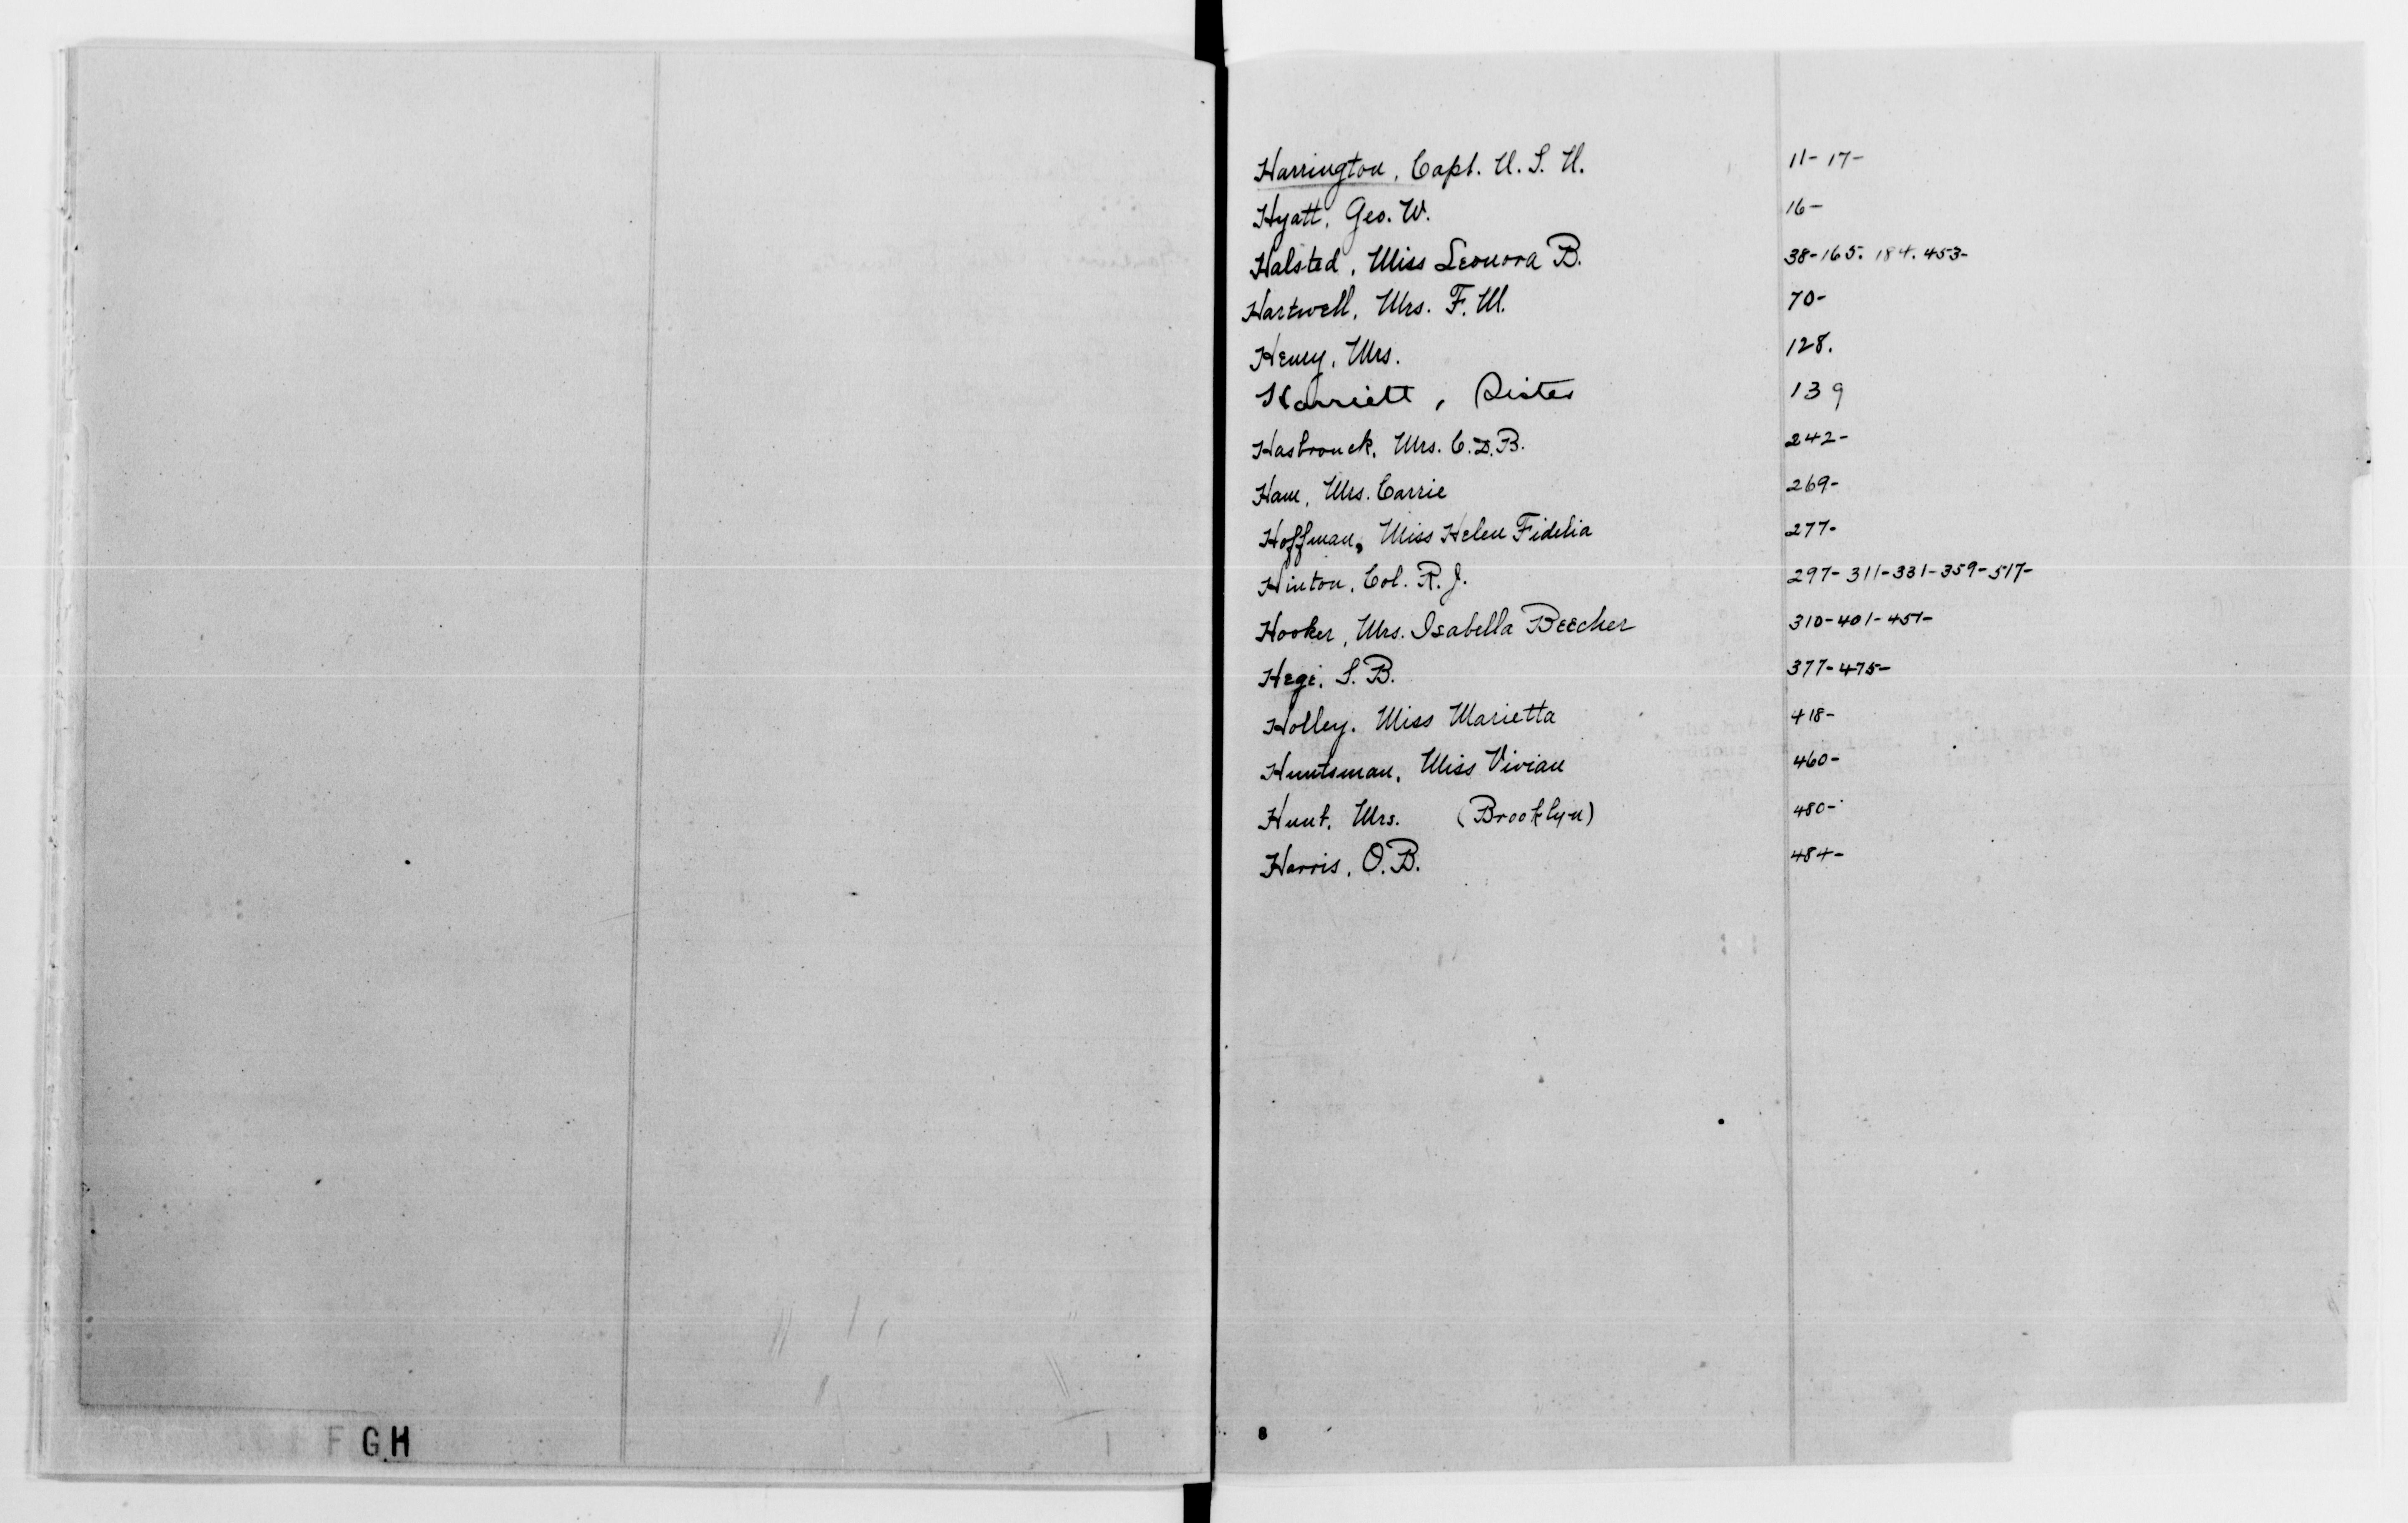 Harrington, Capt. U.S.N. 11-17-
Hyatt, Geo. W. 16-
Halsted, Miss Leonora B. 38-165. 184. 453-
Hartwell, Mrs. F. M. 70-
Henry, Mrs. 128.
Harriett, Sister 139
Hasbrouck, Mrs. C.D.B. 242-
Ham, Mrs. Carrie 269-
Hoffman, Miss Helen Fidelia 277-
Hinton, Col. R. J. 297-311-331-359-517-
Hooker, Mrs. Isabella Beecher 310-401-451-
Hege, S. B. 377-475-
Holley, Miss Marietta 418-
Huntsman, Miss Vivian 460-
Hunt, Mrs. (Brooklyn) 480-
Harris, O.B. 484-
F G H